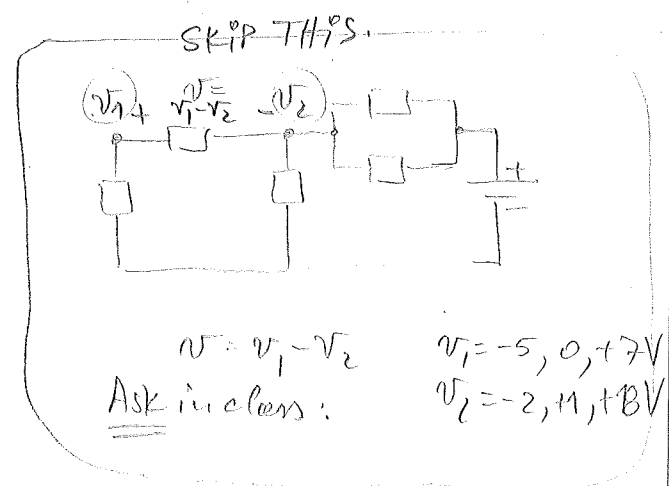 SKIP THIS.
v₁ + v = v₁-v₂ - v₂
+
v = v₁ - v₂ v₁ = -5, 0, +7V
Ask in class: v₂ = -2, +1, +13V